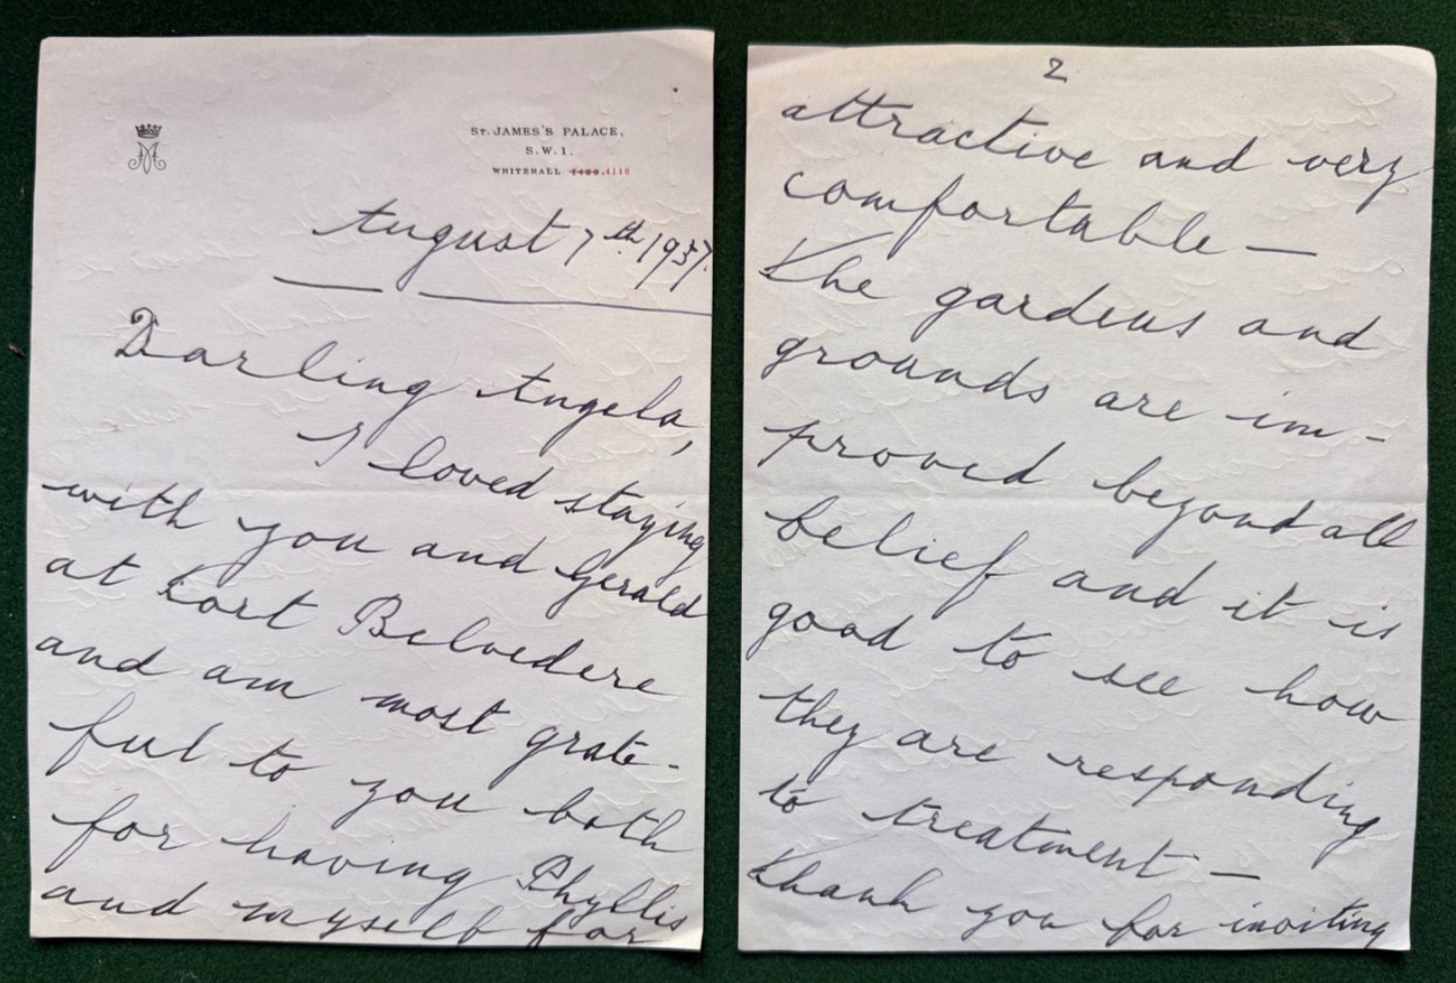 St. JAMES'S PALACE,
S.W.1.
WHITEHALL 1400.4110
August 7th. 1937.
Darling Angela,
I loved staying
with you and Gerald
at Fort Belvedere
and am most grate-
ful to you both
for having Phyllis
and myself for
2
attractive and very
comfortable —
The gardens and
grounds are im-
proved beyond all
belief and it is
good to see how
they are responding
to treatment —
Thank you for inviting